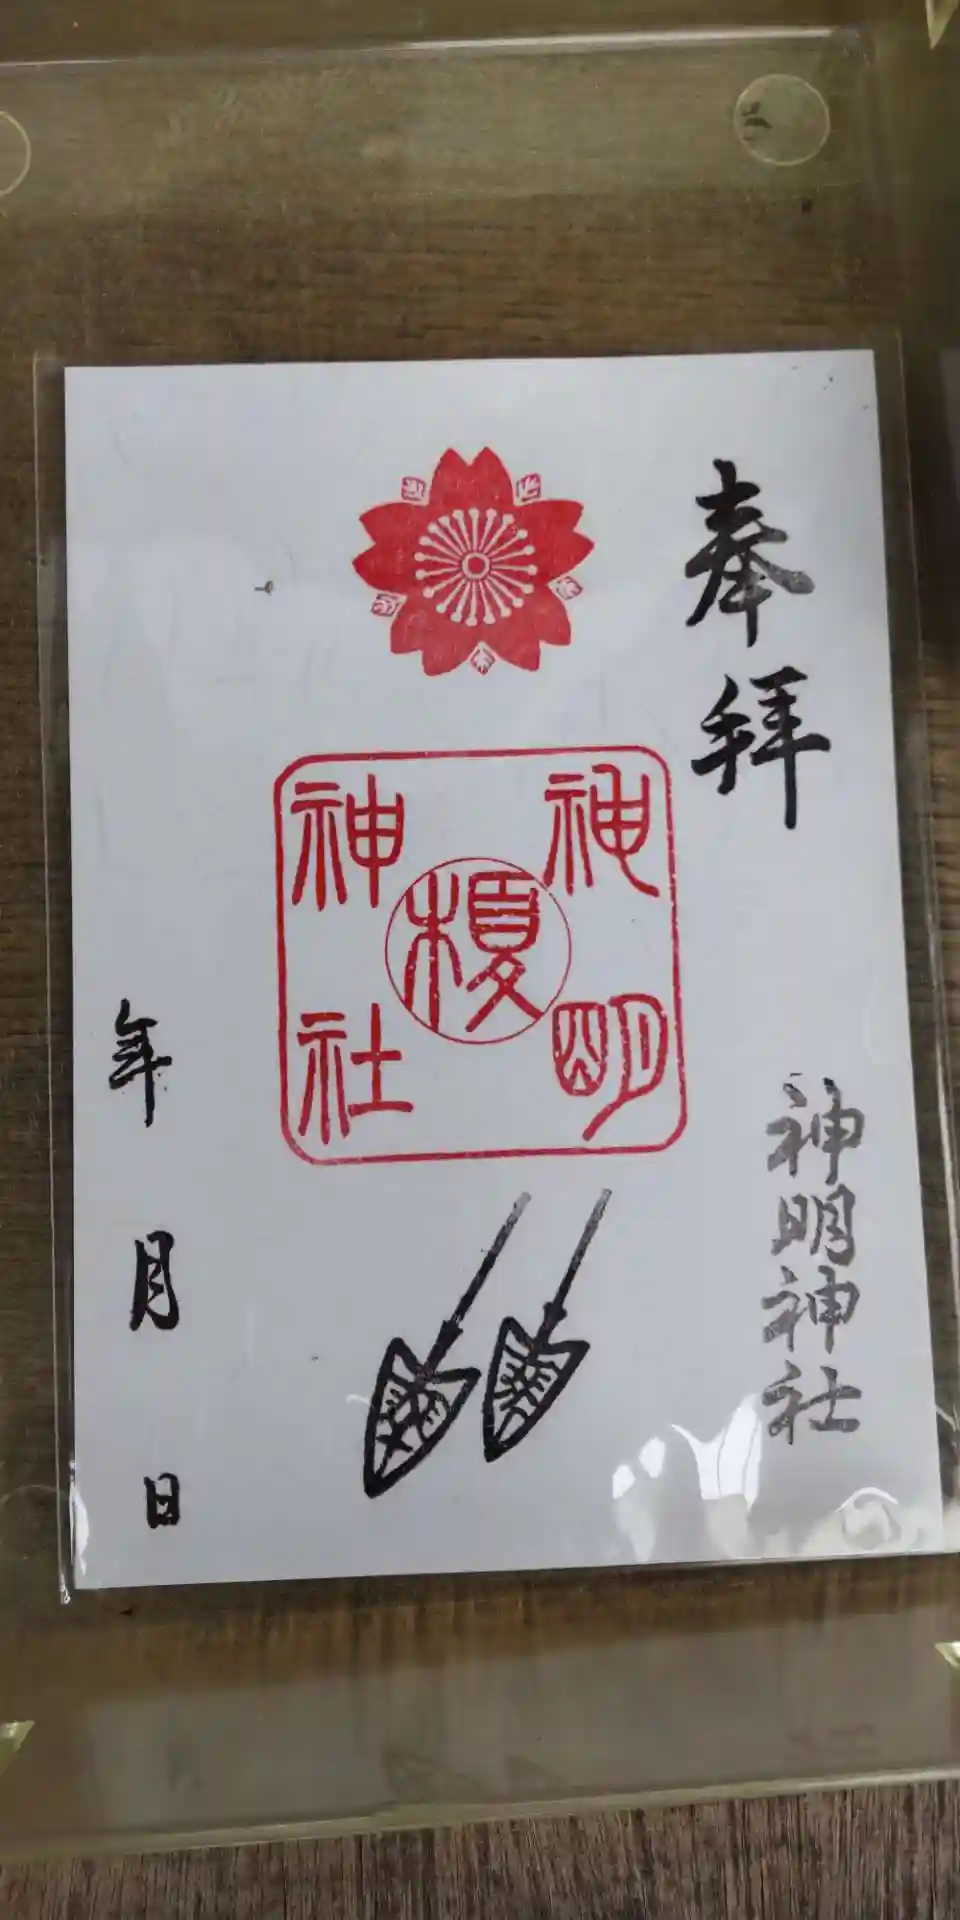 奉拝
神明神社
神明
榎
神社
年
月
日